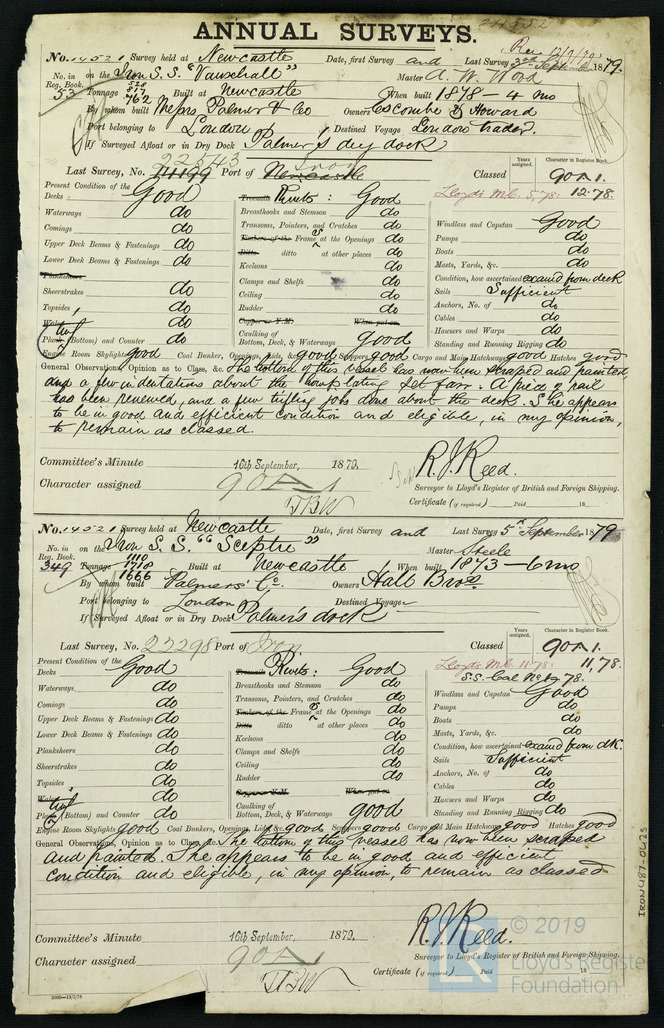 ANNUAL SURVEYS.
No. 14521 Survey held at Newcastle Date, first Survey and Last Survey 3rd September 1879.
No. in on the Iron S.S. "Vauxhall" Master A. W. Wood
Reg. Book.
53 Tonnage 762 Built at Newcastle When built 1878 - 4 mo
By whom built Messrs Palmer & Co Owners Escombe & Howard
Port belonging to London Destined Voyage London trader.
If Surveyed Afloat or in Dry Dock Palmer's dry dock
Last Survey, No. 22543 Port of Iron Newcastle Years assigned. Classed Character in Register Book. 90A1.
Lloyds M.C. 5,78. 12.78.
Present Condition of the
Decks Good Rivets: Good
Waterways do Breasthooks and Stemson do Windlass and Capstan Good
Comings do Transoms, Pointers, and Crutches do Pumps do
Upper Deck Beams & Fastenings do Timbers of the Frames at the Openings do Boats do
Lower Deck Beams & Fastenings do Ditto ditto at other places do Masts, Yards, &c. do
Planksheers Keelsons do Condition, how ascertained examd from deck
Sheerstrakes do Clamps and Shelfs do Sails Sufficient
Topsides do Ceiling do Anchors, No. of do
Wales do Rudder do Cables do
Copper or Y.M. When put on
Plating (Bottom) and Counter do Caulking of Bottom, Deck, & Waterways good Hawsers and Warps do
Standing and Running Rigging do
Engine Room Skylights good Coal Bunker, Openings, Lids, &c good Scuppers good Cargo and Main Hatchways good Hatches good
General Observations, Opinion as to Class, &c. The bottom of this vessel has now been scraped and painted,
and a few indentations about the bow plating set fair. A piece of rail
has been renewed, and a few trifling jobs done about the deck. She appears
to be in good and efficient condition and eligible, in my opinion,
to remain as classed.
Committee's Minute 16th September, 1879. R. J. Reed.
Character assigned 90A1 Surveyor to Lloyd's Register of British and Foreign Shipping.
TBW Certificate (if required) Paid 18
No. 14521 Survey held at Newcastle Date, first Survey and Last Survey 5th September 1879
No. in on the Iron S.S. "Sceptre" Master Steele
Reg. Book. 1110
349 Tonnage 1718 1666 Built at Newcastle When built 1873 - 6 mo
By whom built Palmers' Co. Owners Hall Bros
Port belonging to London Destined Voyage
If Surveyed Afloat or in Dry Dock Palmer's dock
Last Survey, No. 22298 Port of Iron Years assigned. Classed Character in Register Book. 90A1.
Lloyds M.C. 11.78. 11,78.
Present Condition of the S.S. 78.
Decks Good Rivets: Good Windlass and Capstan Good
Waterways do Breasthooks and Stemson do Pumps do
Comings do Transoms, Pointers, and Crutches do Boats do
Upper Deck Beams & Fastenings do Timbers of the Frames at the Openings do Masts, Yards, &c. do
Lower Deck Beams & Fastenings do Ditto ditto at other places do Condition, how ascertained examd from dk.
Planksheers do Keelsons do Sails Sufficient
Sheerstrakes do Clamps and Shelfs do Anchors, No. of do
Topsides do Ceiling do Cables do
Wales do Rudder do Hawsers and Warps do
Copper or Y.M. When put on
Plating (Bottom) and Counter do Caulking of Bottom, Deck, & Waterways good Standing and Running Rigging do
Engine Room Skylights good Coal Bunkers, Openings, Lids &c good Scuppers good Cargo and Main Hatchways good Hatches good
General Observations, Opinion as to Class, &c. The bottom of this vessel has now been scraped
and painted. She appears to be in good and efficient
condition and eligible, in my opinion, to remain as classed
IRON487-0425
Committee's Minute 16th September, 1879. R. J. Reed.
Character assigned 90A1 Surveyor to Lloyd's Register of British and Foreign Shipping.
TBW Certificate (if required) Paid 18
© 2019
Lloyd's Register
Foundation